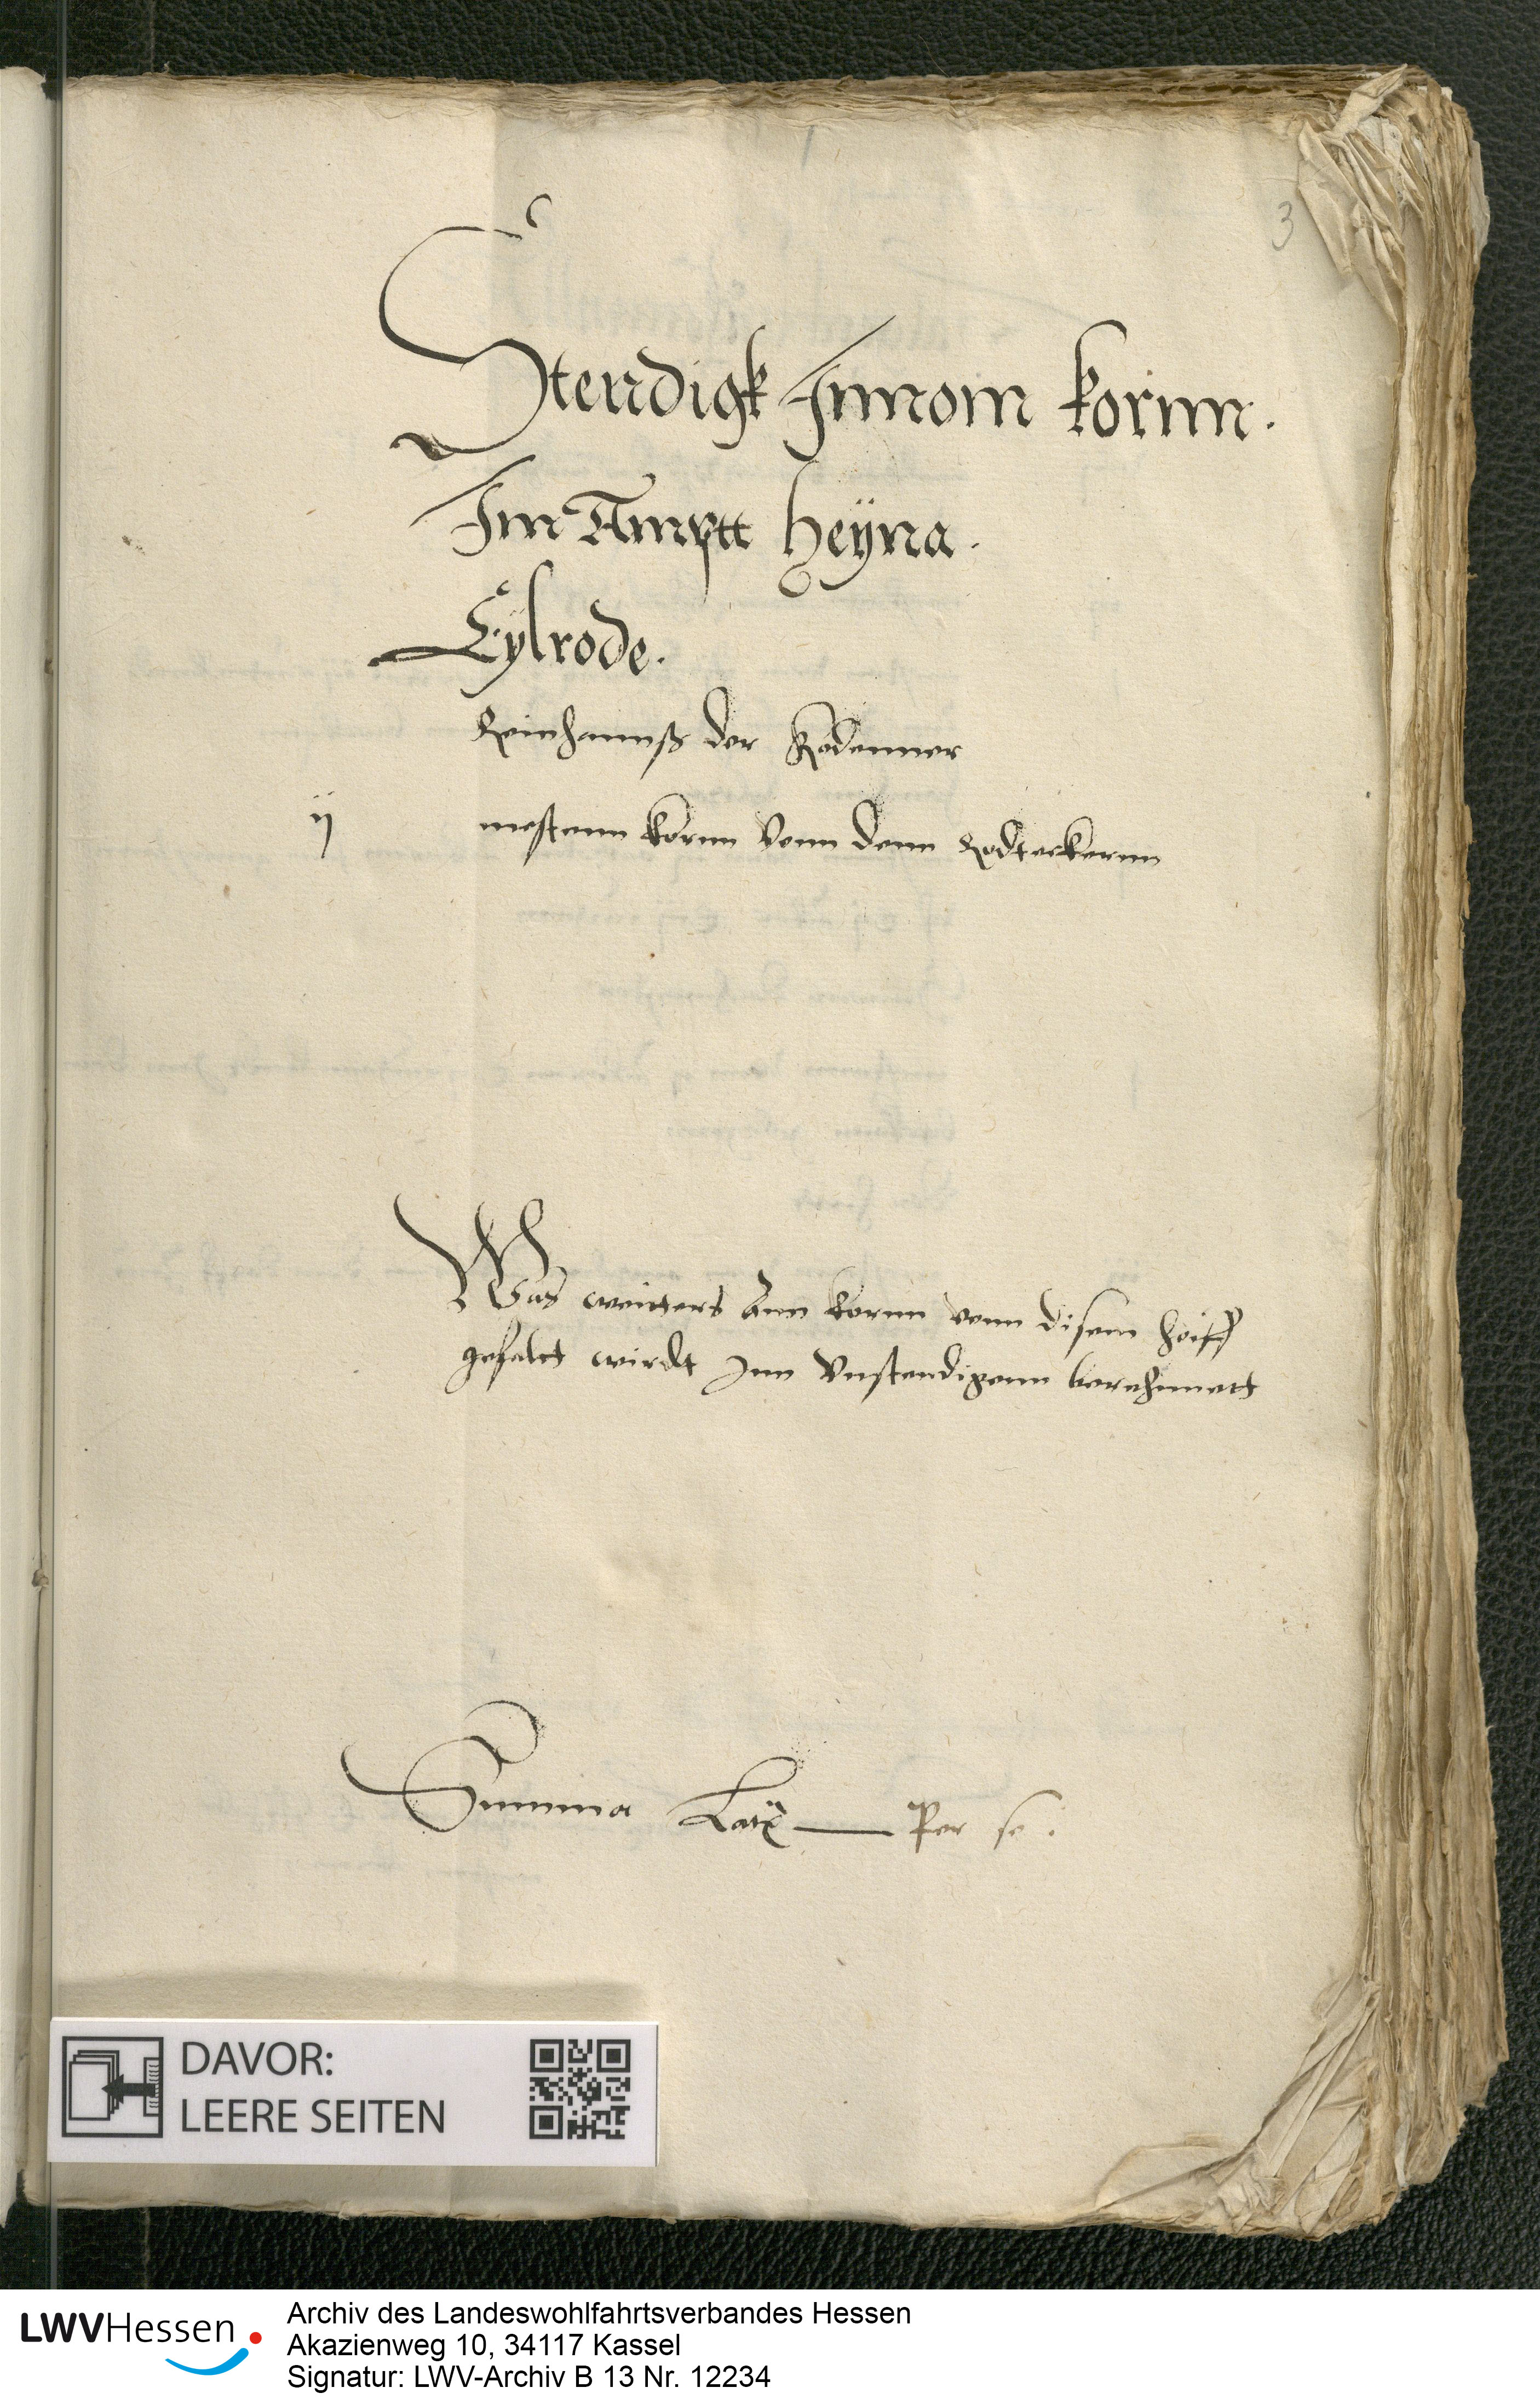 3
Stendigk Innom kornn.
Im Amptt Heÿna.
Eylrode.
Reinhannß der Rodenner
ij mestenn kornn vonn denn Rodteckernn
Was weitters ann kornn vonn disem hoiff
gefaltt wirdt Inn Vnstendigenn berechnnett
Summa Per se.
DAVOR:
LEERE SEITEN
LWVHessen
Archiv des Landeswohlfahrtsverbandes Hessen
Akazienweg 10, 34117 Kassel
Signatur: LWV-Archiv B 13 Nr. 12234